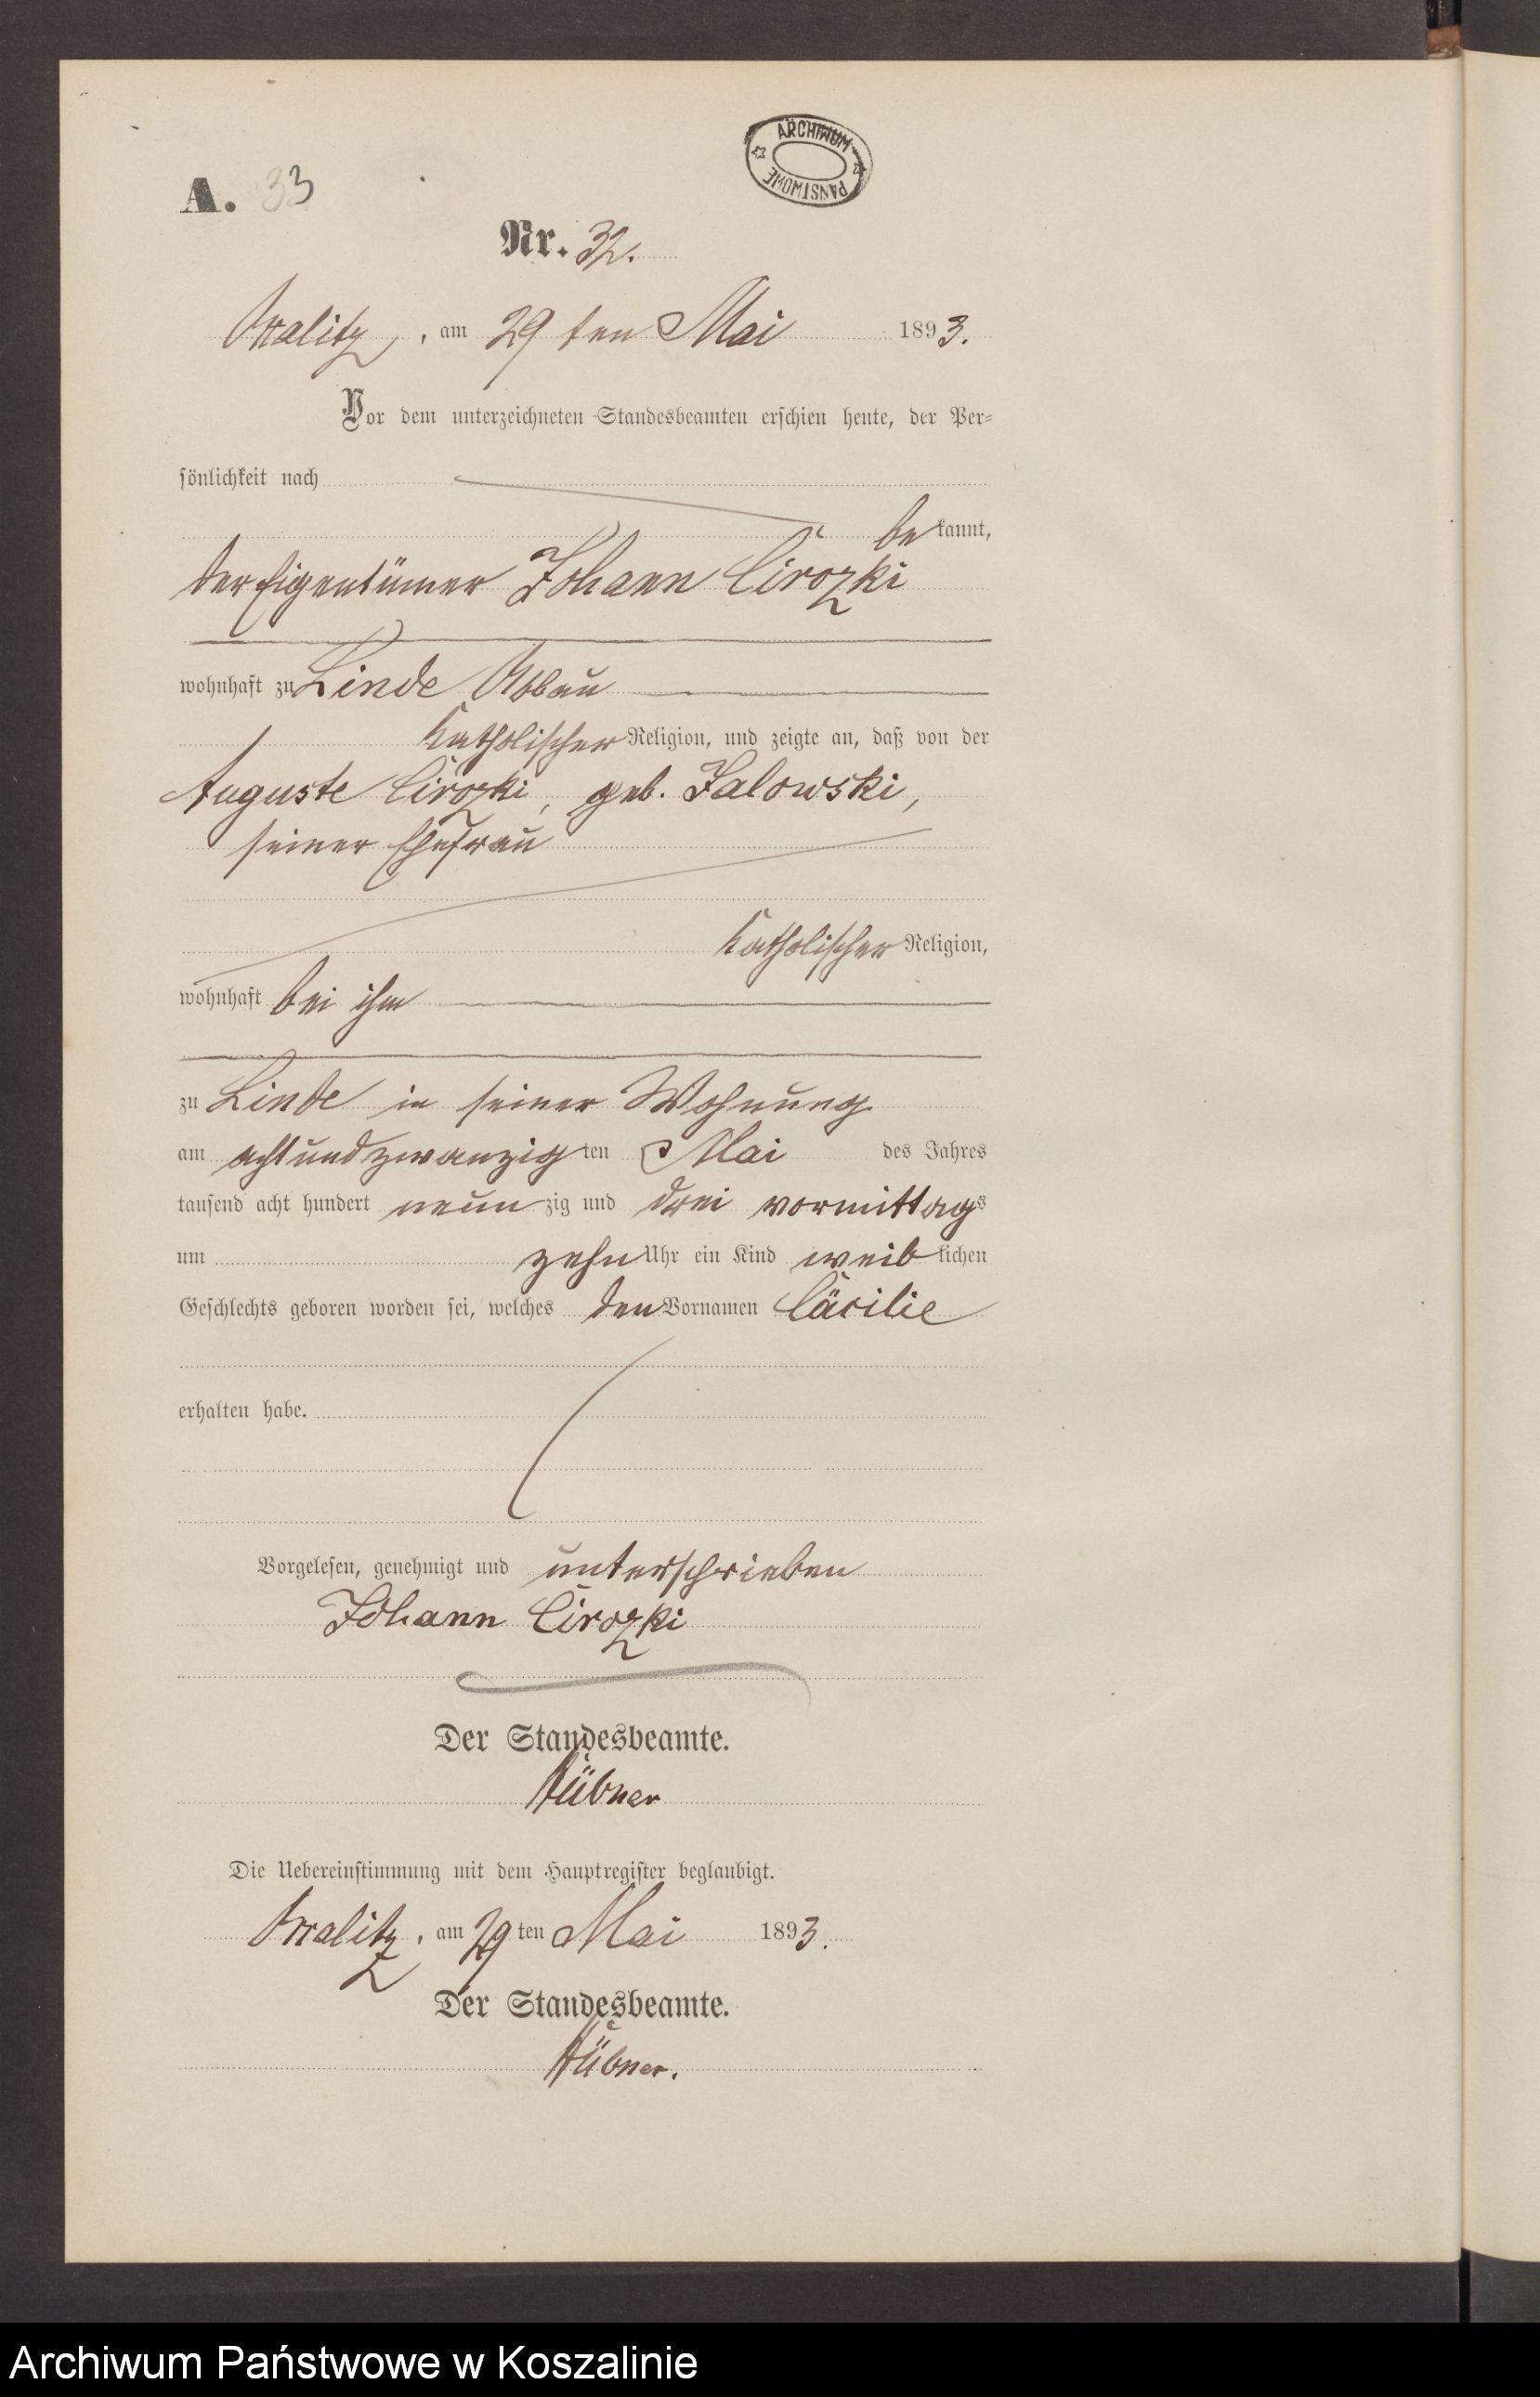 ARCHIWUM PAŃSTWOWE
A. 33
Nr. 32.
am 29ten Mai 1893.
Vor dem unterzeichneten Standesbeamten erschien heute, der Per-
sönlichkeit nach
bekannt,
der Eigentümer Johann Cirozki
wohnhaft zu Linde Abbau
katholischer Religion, und zeigte an, daß von der
Auguste Cirozki, geb. Jalowski,
seiner Ehefrau
katholischer Religion,
wohnhaft bei ihm
zu Linde in seiner Wohnung
am achtundzwanzigten Mai des Jahres
tausend acht hundert neunzig und drei vormittags
um zehn Uhr ein Kind weiblichen
Geschlechts geboren worden sei, welches den Vornamen Cäcilie
erhalten habe.
Vorgelesen, genehmigt und unterschrieben
Johann Cirozki
Der Standesbeamte.
Hübner
Die Uebereinstimmung mit dem Hauptregister beglaubigt.
am 29ten Mai 1893.
Der Standesbeamte.
Hübner.
Archiwum Państwowe w Koszalinie